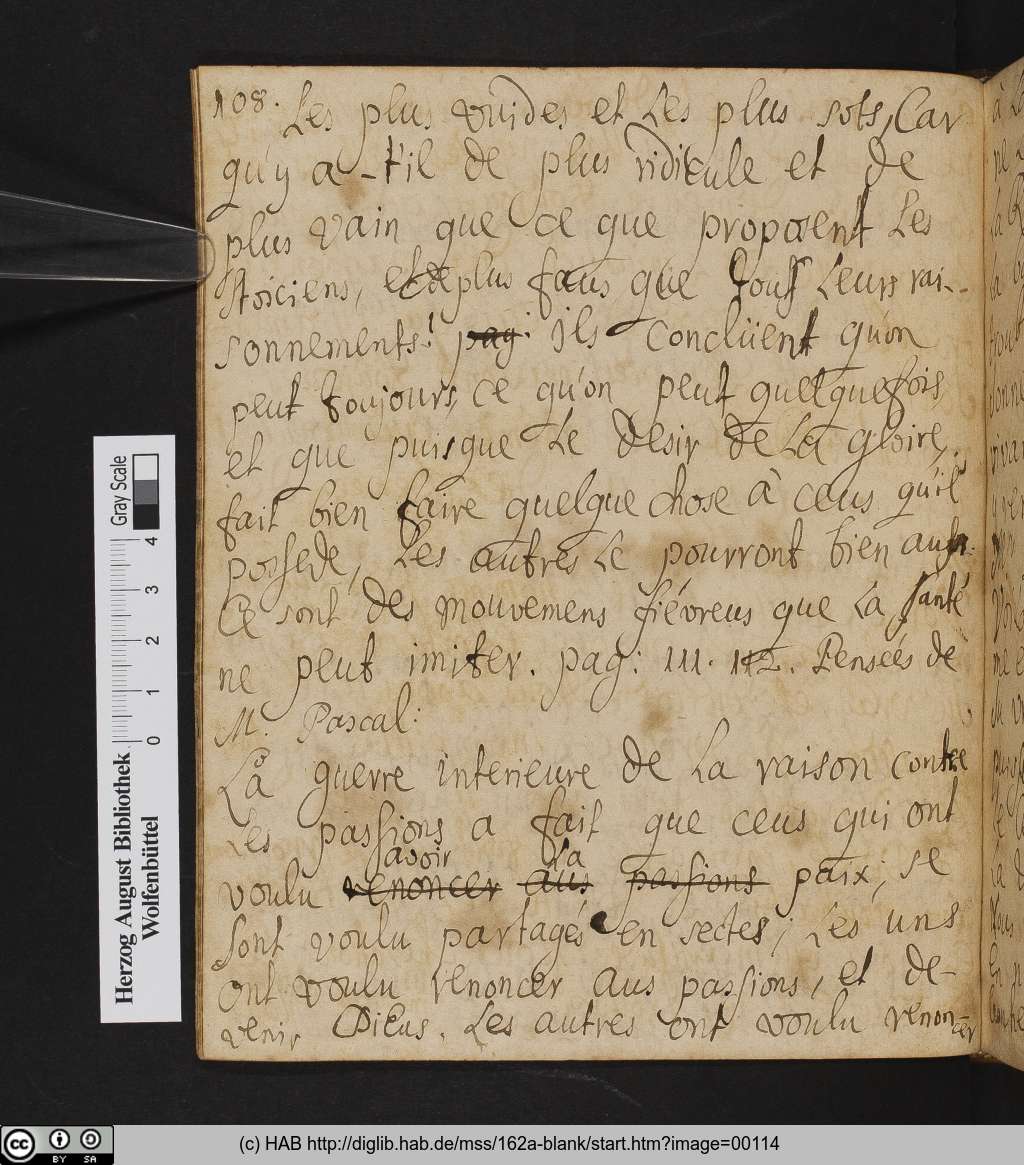 108. Les plus vuides et Les plus sots, Car
qu'y a-t'il de plus ridicule et de
plus vain que ce que proposent Les
Stoiciens, et de plus faus que Tous Leurs rai-
sonnements! pag: Ils conclüent qu'on
peut toujours, ce qu'on peut quelquefois,
et que puisque Le desir de La gloire,
fait bien faire quelque chose à ceus qu'il
possede, Les autres Le pourront bien aussi.
Ce sont des mouvemens fiévreus que La santé
ne peut imiter. pag: 111. 112. Penseés de
M. Pascal:
La guerre interieure de La raison contre
Les passions a fait que ceus qui ont
avoir La
voulu renoncer aus passions paix, se
sont voulu partagés en sectes; Les uns
ont voulu renoncer aus passions, et de-
venir Dieus. Les autres ont voulu renoncer
Herzog August Bibliothek
Wolfenbüttel
0 1 2 3 4
Gray Scale
cc BY SA
(c) HAB http://diglib.hab.de/mss/162a-blank/start.htm?image=00114